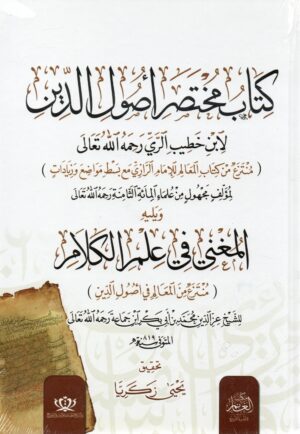 كتاب مختصر أصول الدين
لابن خطيب الري رحمه الله تعالى
( منتزع من كتاب المعالم للإمام الرازي مع بسط مواضع وزيادات )
لمؤلف مجهول من علماء المائة الثامنة رحمه الله تعالى
ويليه
المغني في علم الكلام
( منتزع من المعالم في أصول الدين )
للشيخ عز الدين محمد بن أبي بكر ابن جماعة رحمه الله تعالى
المتوفى سنة ٨١٩هـ
تحقيق
يحيى زكريا